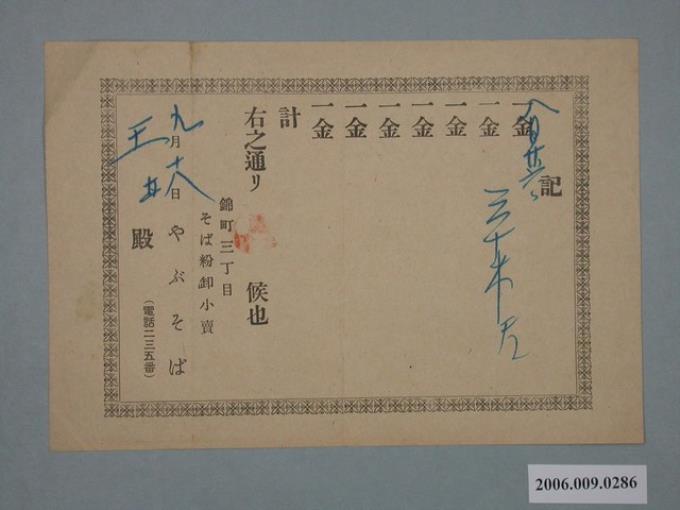 記
一金
一金
一金
一金
一金
一金
一金
計
右之通リ 候也
錦町三丁目
そば粉卸小賣
やぶそば
(電話二三五番)
九月十八日
殿
2006.009.0286